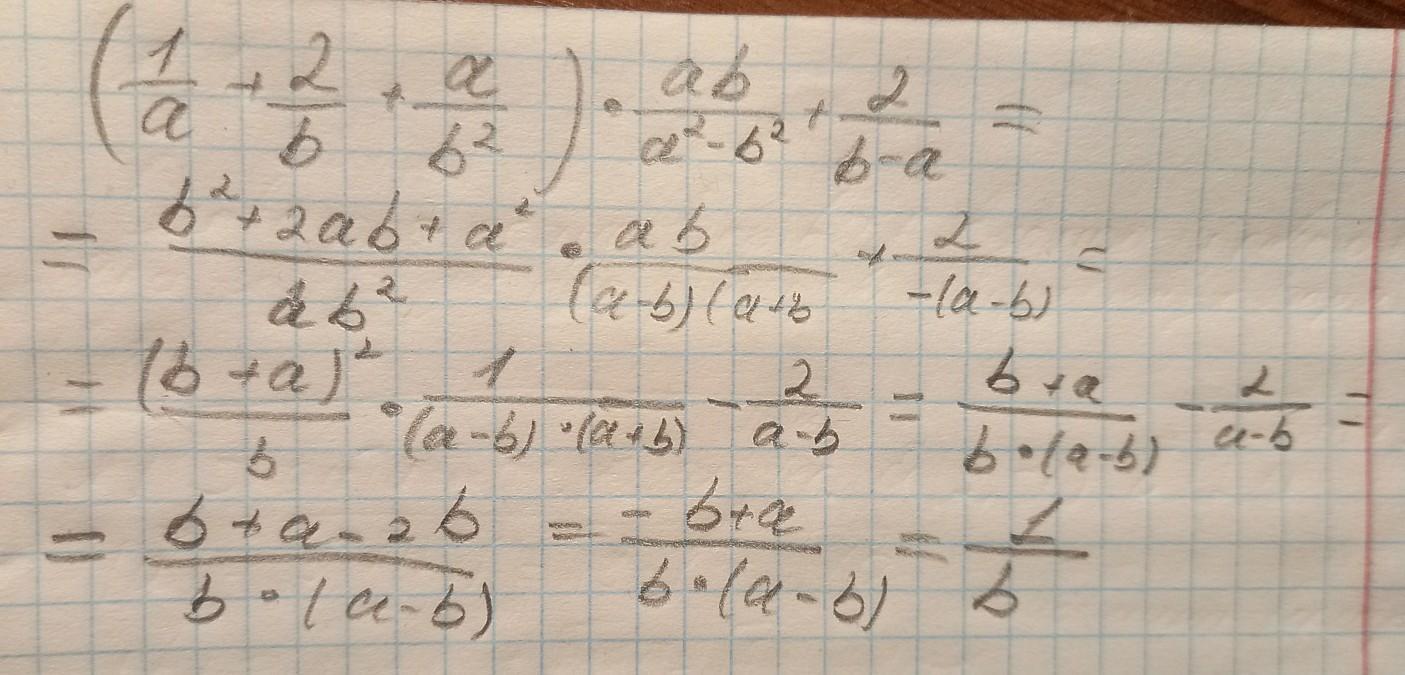 (1/a + 2/b + a/b²) · ab/(a²-b²) + 2/(b-a) =
= (b²+2ab+a²)/(ab²) · ab/((a-b)(a+b) + 2/(-(a-b)) =
= (b+a)²/b · 1/((a-b)·(a+b)) - 2/(a-b) = (b+a)/(b·(a-b)) - 2/(a-b) =
= (b+a-2b)/(b·(a-b)) = (-b+a)/(b·(a-b)) = 1/b